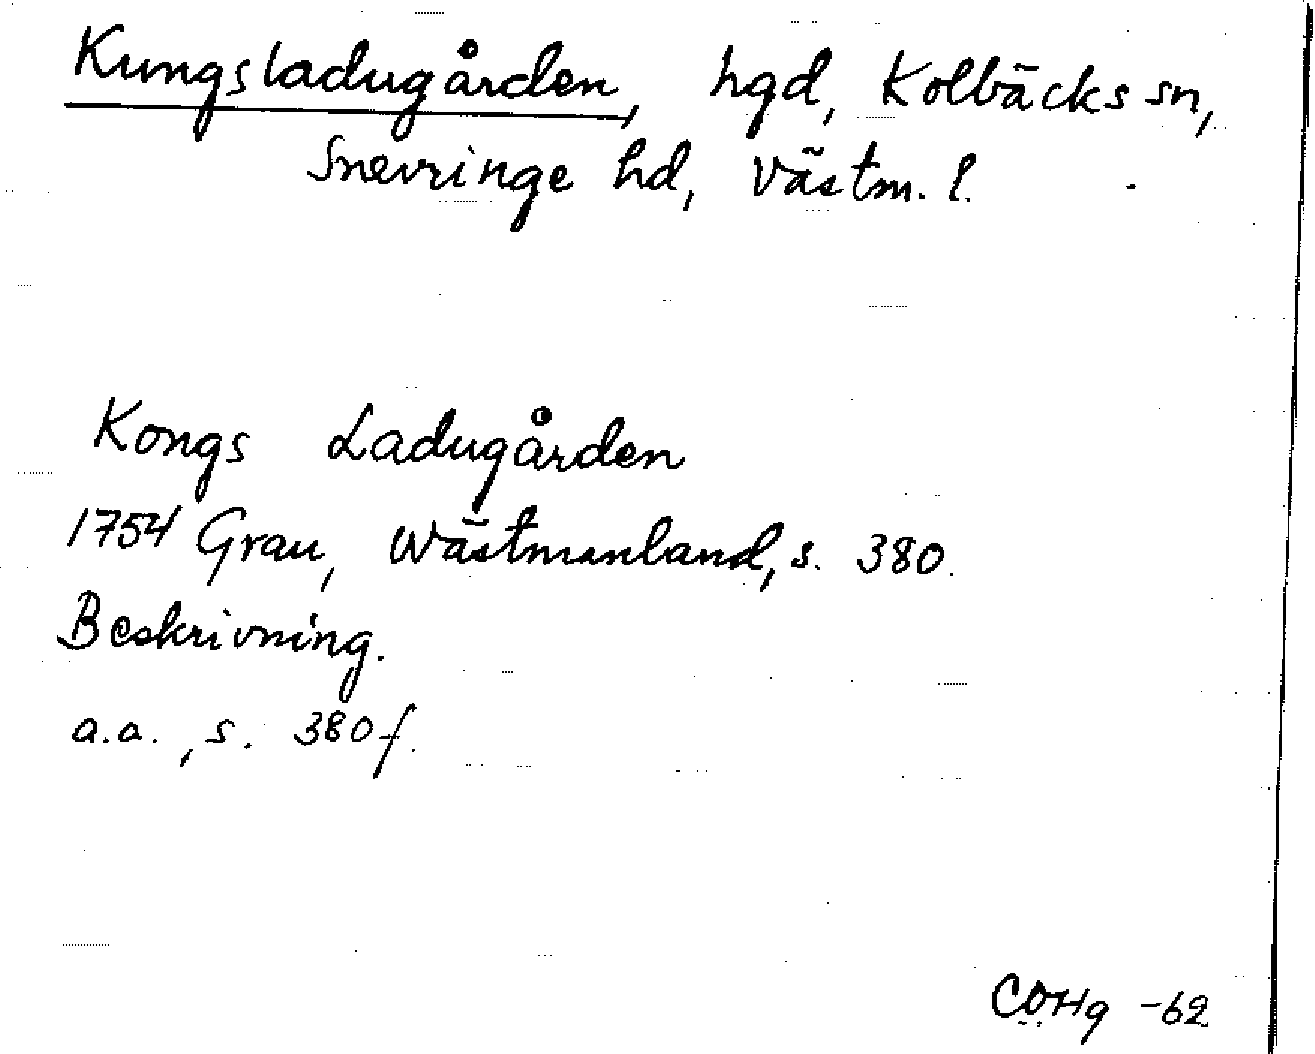 Kungsladugården, hgd, Kolbäcks sn,
Snevringe hd, Västm. l.
Kongs Ladugården
1754 Grau, Wästmanland, s. 380.
Beskrivning.
a.a., s. 380 f.
COHg -62